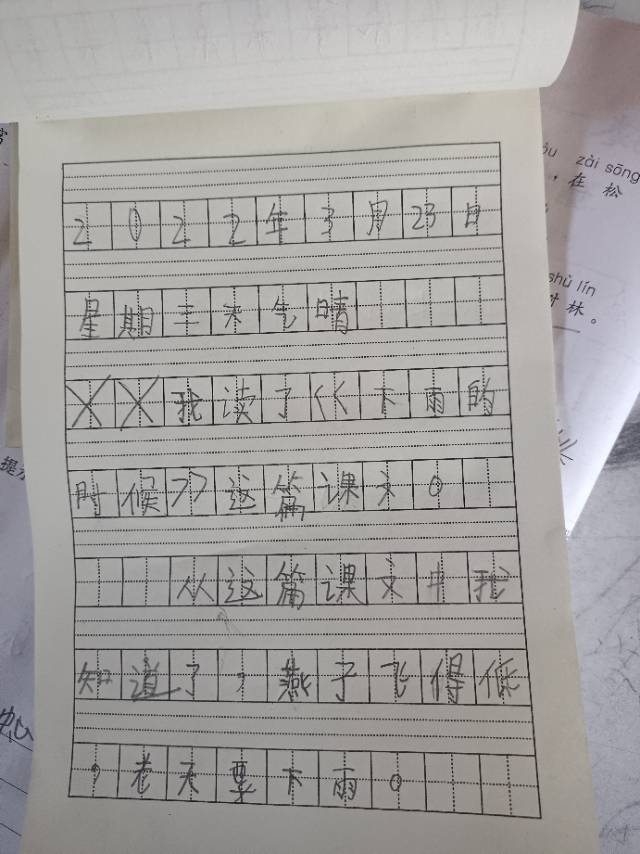 2022年3月23日
星期三天气晴
我读了《下雨的
时候》这篇课文。
从这篇课文中我
知道了，燕子飞得低
，老天要下雨。
óu zài sōng
，在松
shù lín
林。